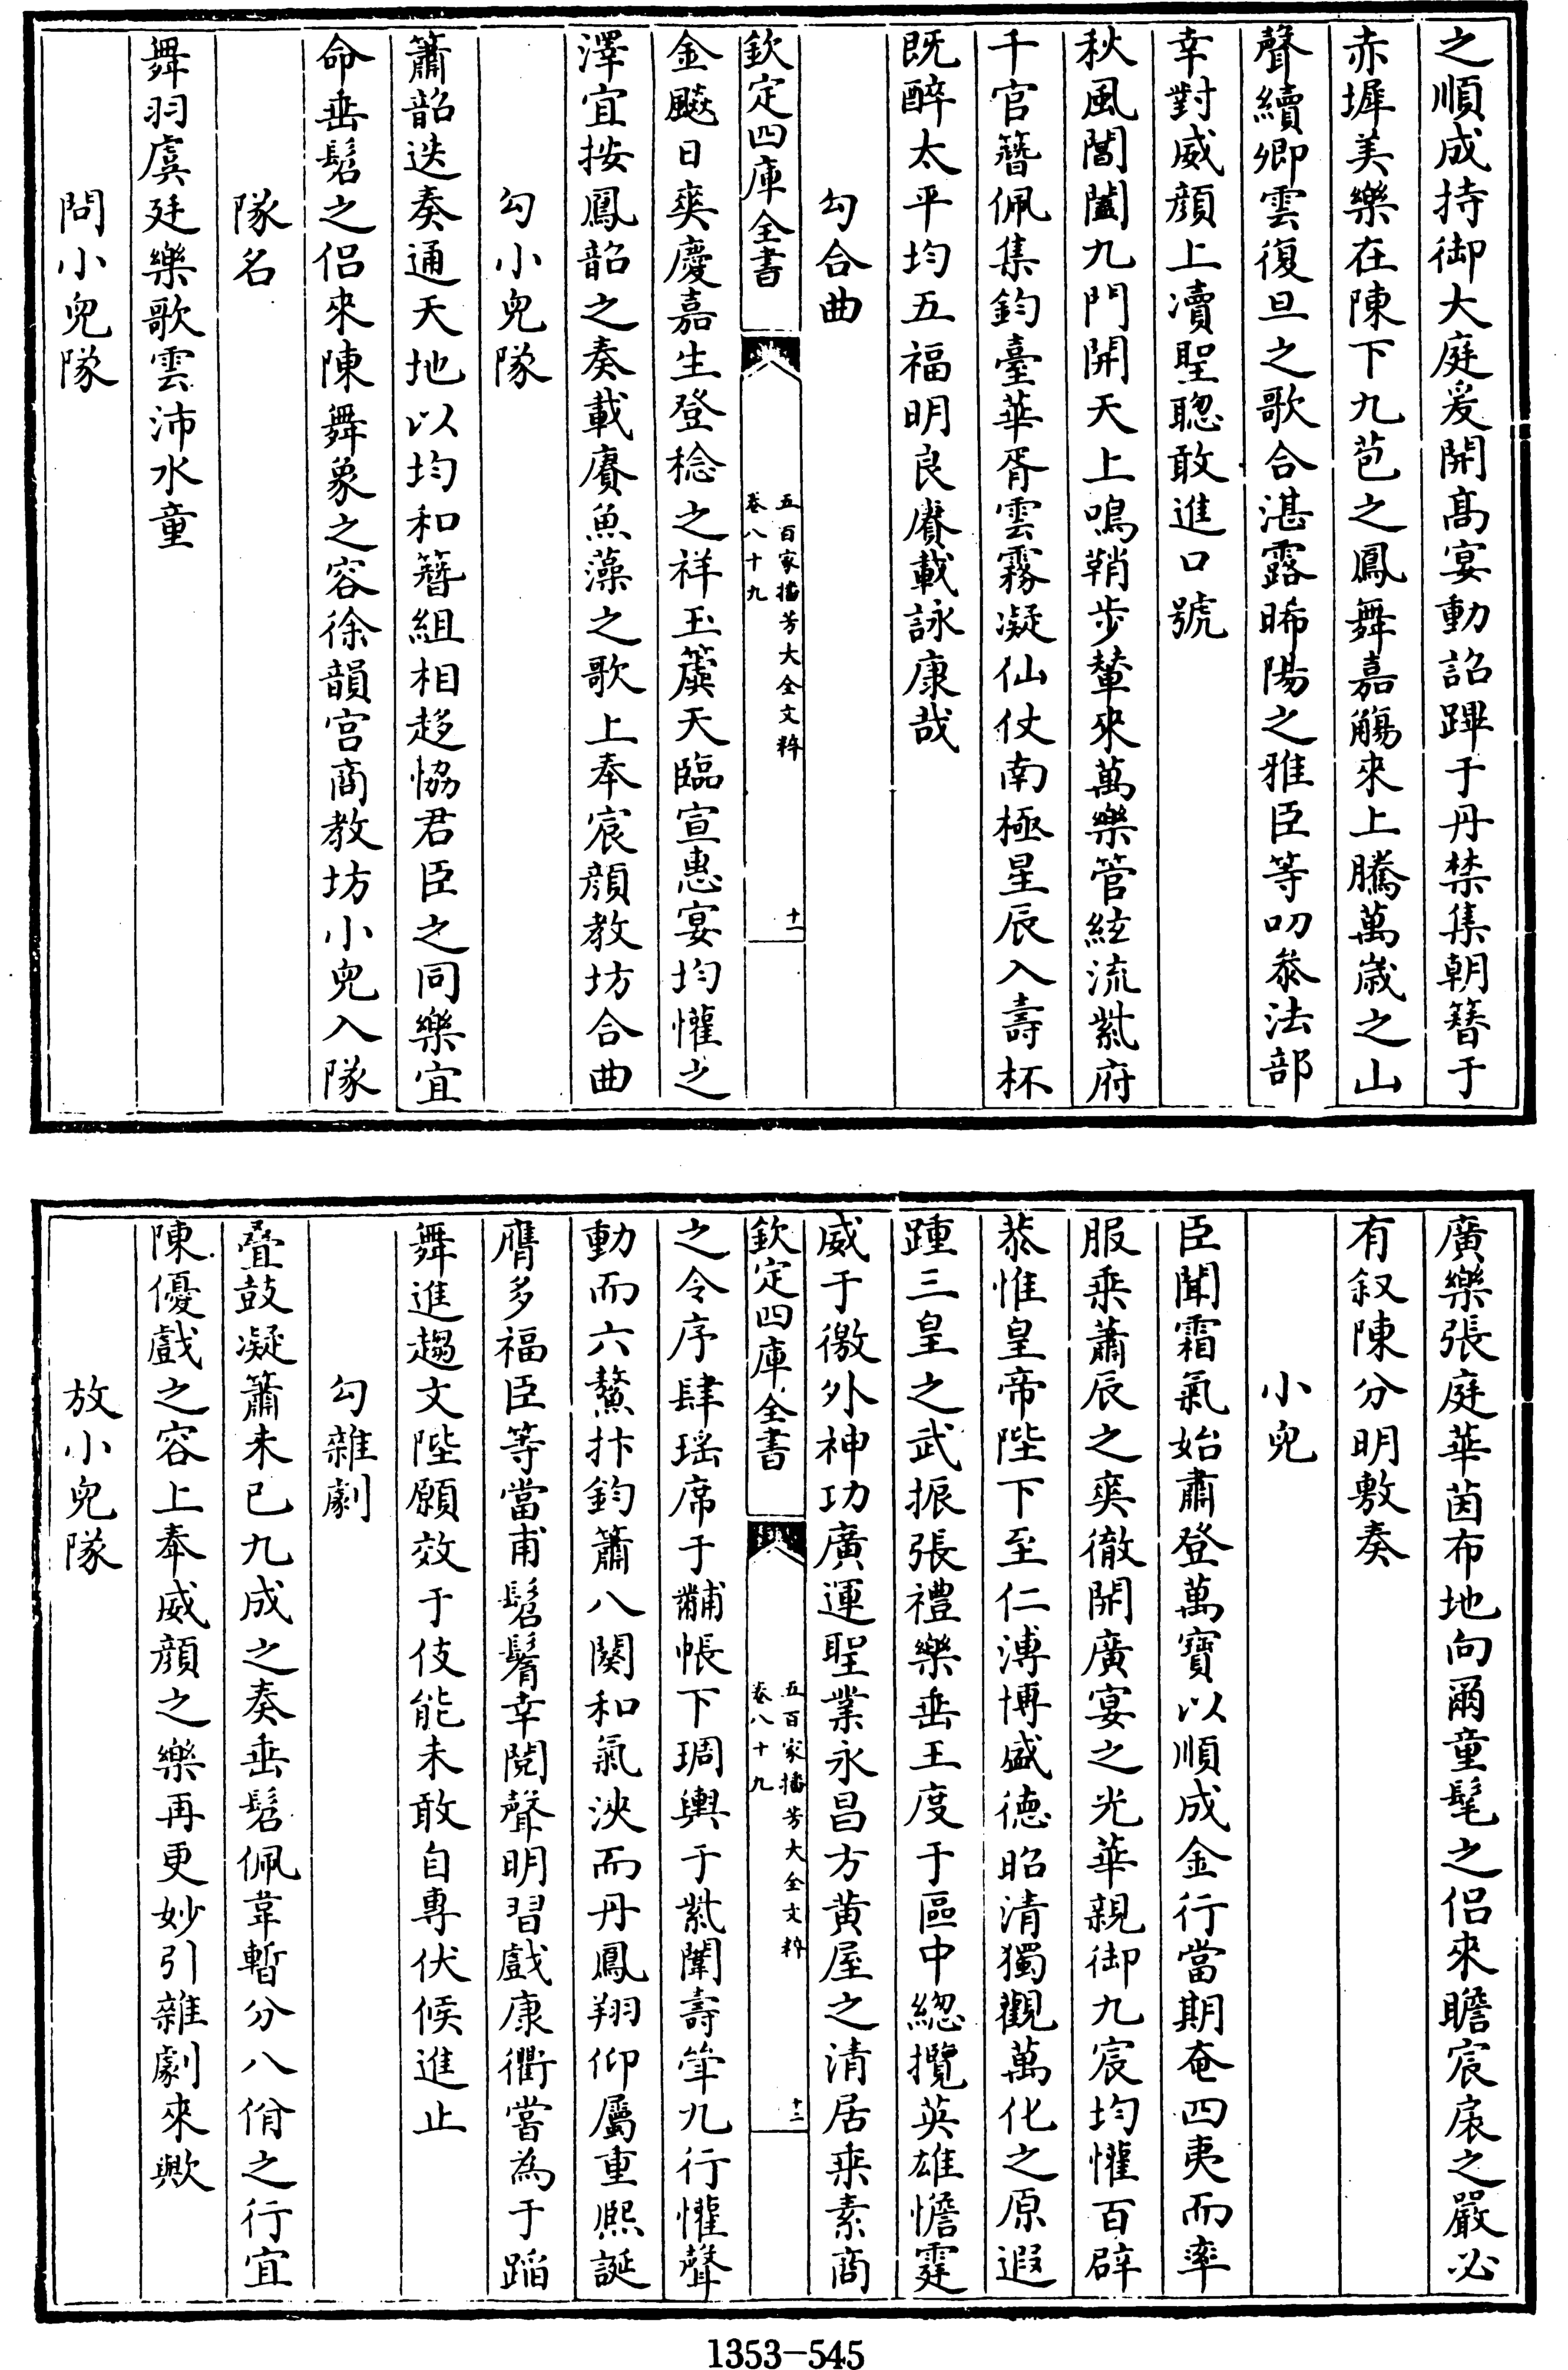 之順成持御大庭爰開髙宴動詔蹕于丹禁集朝簪于
赤墀美樂在陳下九苞之鳳舞嘉觴來上騰萬歲之山
聲續卿雲復旦之歌合湛露晞陽之雅臣等叨叅法部
幸對威顔上瀆聖聰敢進口號
秋風閶闔九門開天上鳴鞘步輦來萬樂管絃流紫府
千官簪佩集鈞臺華胥雲霧凝仙仗南極星辰入壽杯
既醉太平均五福明良賡載詠康哉
勾合曲
欽定四庫全書
五百家播芳大全文粹
卷八十九
十一
金飈日爽慶嘉生登稔之祥玉蓂天臨宣惠宴均懽之
澤宜按鳳韶之奏載賡魚藻之歌上奉宸顔教坊合曲
勾小兒隊
簫韶迭奏通天地以均和簪組相趍恊君臣之同樂宜
命垂髫之侣來陳舞象之容徐韻宫商教坊小兒入隊
隊名
舞羽虞廷樂歌雲沛水童
問小兒隊
廣樂張庭華茵布地向爾童髦之侣來瞻宸扆之嚴必
有叙陳分明敷奏
小兒
臣聞霜氣始肅登萬寶以順成金行當期奄四夷而率
服乘蕭辰之爽徹開廣宴之光華親御九宸均懽百辟
恭惟皇帝陛下至仁溥博盛德昭清獨觀萬化之原遐
踵三皇之武振張禮樂垂王度于區中總攬英雄憺霆
威于徼外神功廣運聖業永昌方黄屋之清居乗素商
欽定四庫全書
五百家播芳大全文粹
卷八十九
十二
之令序肆瑶席于黼帳下琱輿于紫闈壽斝九行懽聲
動而六鰲抃鈞簫八闋和氣浹而丹鳳翔仰屬重熈誕
膺多福臣等當甫髫鬌幸閱聲明習戲康衢嘗為于蹈
舞進趨文陛願效于伎能未敢自專伏候進止
勾雜劇
疊鼓凝簫未已九成之奏垂髫佩韋暫分八佾之行宜
陳優戲之容上奉威顔之樂再更妙引雜劇來歟
放小兒隊
1353-545